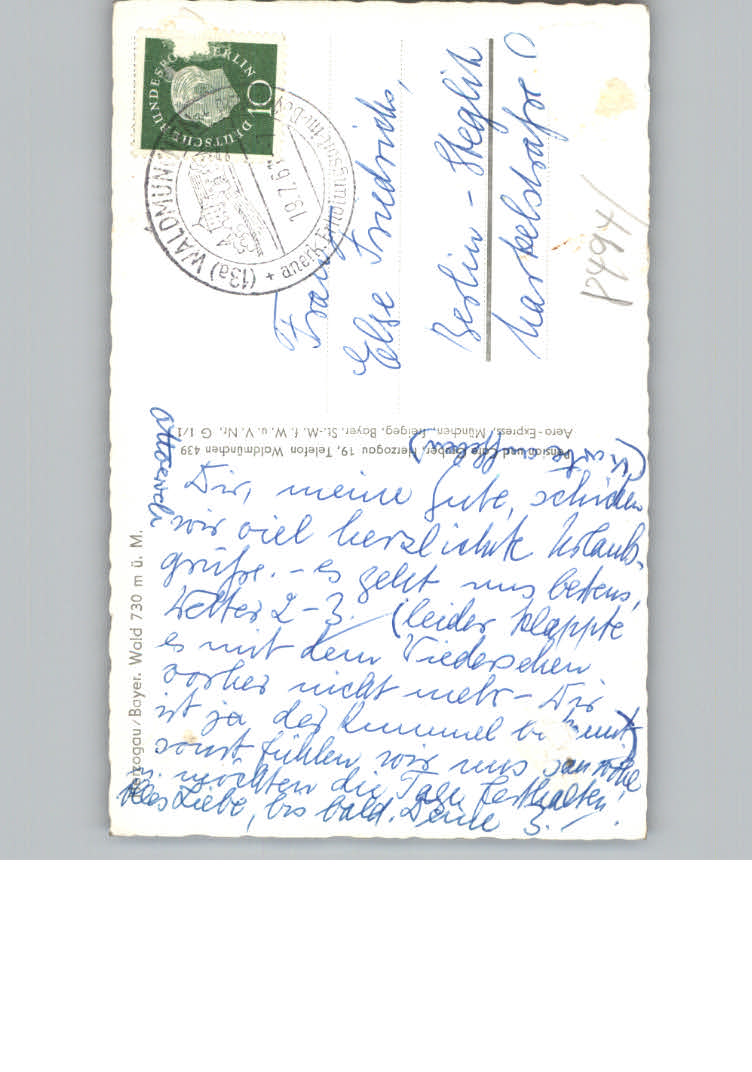 DEUTSCHE BUNDESPOST BERLIN
10
(13a) WALDMÜNCHEN
18.7.6
+ anerk. Erholungsort im Bay
Frau
Else Friedrichs,
Berlin - Steglitz
Markelstraße
P494/
Pension und Café Gruber, Herzogau 19, Telefon Waldmünchen 439
Aero-Express, München, freigeg. Bayer. St.-M. f. W. u. V. Nr. G 1/1
Herzogau/Bayer. Wald 730 m ü. M.
Dir, meine Gute, schicken
wir viel herzlichste Urlaubs-
grüße. - es geht uns bestens,
Wetter 2-3. (leider klappte
es mit dem Wiedersehen
vorher nicht mehr - Dir
ist ja der Rummel bekannt)
sonst fühlen wir uns sauwohl
u. möchten die Tage festhalten!
Alles Liebe, bis bald. Deine